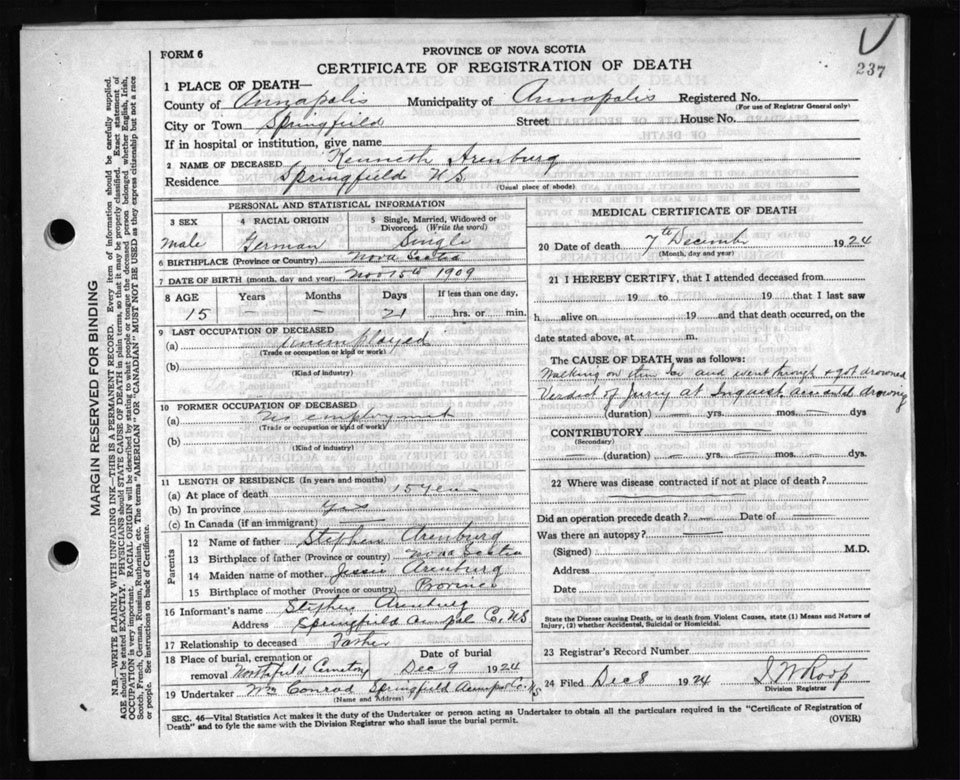 237
FORM 6
PROVINCE OF NOVA SCOTIA
CERTIFICATE OF REGISTRATION OF DEATH
1 PLACE OF DEATH—
County of Annapolis Municipality of Annapolis Registered No.
(For use of Registrar General only)
City or Town Springfield Street House No.
If in hospital or institution, give name
2 NAME OF DECEASED Kenneth Arenburg
Residence Springfield N.S.
(Usual place of abode)
PERSONAL AND STATISTICAL INFORMATION
3 SEX 4 RACIAL ORIGIN 5 Single, Married, Widowed or Divorced. (Write the word)
Male German Single
6 BIRTHPLACE (Province or Country) Nova Scotia
7 DATE OF BIRTH (month, day and year) Nov 15th 1909
8 AGE Years Months Days If less than one day,
15 — — 21 hrs. or min.
9 LAST OCCUPATION OF DECEASED
(a) Unemployed
(Trade or occupation or kind or work)
(b)
(Kind of industry)
10 FORMER OCCUPATION OF DECEASED
(a) No employment
(Trade or occupation or kind of work)
(b)
(Kind of industry)
11 LENGTH OF RESIDENCE (In years and months)
(a) At place of death 15 years
(b) In province Yes
(c) In Canada (if an immigrant)
Parents
12 Name of father Stephen Arenburg
13 Birthplace of father (Province or country) Nova Scotia
14 Maiden name of mother Jessie Arenburg
15 Birthplace of mother (Province or country) Province
16 Informant's name Stephen Arenburg
Address Springfield Annapol Co. N.S
17 Relationship to deceased Father
18 Place of burial, cremation or removal Date of burial
Northfield Cemetery Dec 9 1924
19 Undertaker Wm Conrad Springfield Annapol Co. N.S
(Name and Address)
MEDICAL CERTIFICATE OF DEATH
20 Date of death 7th December 1924
(Month, day and year)
21 I HEREBY CERTIFY, that I attended deceased from
19 to 19 that I last saw
h alive on 19 and that death occurred, on
date stated above, at m.
The CAUSE OF DEATH was as follows:
Walking on thin Ice and went through & got drowned
Verdict of Jury at Inquest accidental drowing
(duration) — yrs. — mos. — dys
CONTRIBUTORY
(Secondary)
— (duration) — yrs. — mos. — dys.
22 Where was disease contracted if not at place of death?
Did an operation precede death? — Date of
Was there an autopsy? —
(Signed) M.D.
Address
Date
State the Disease causing Death, or in death from Violent Causes, state (1) Means and Nature of Injury, (2) whether Accidental, Suicidal or Homicidal.
23 Registrar's Record Number
24 Filed Dec 8 1924 I W Roop
Division Registrar
SEC. 46—Vital Statistics Act makes it the duty of the Undertaker or person acting as Undertaker to obtain all the particulars required in the "Certificate of Registration of
Death" and to fyle the same with the Division Registrar who shall issue the burial permit.
(OVER)
MARGIN RESERVED FOR BINDING
N.B.—WRITE PLAINLY WITH UNFADING INK—THIS IS A PERMANENT RECORD. Every item of information should be carefully supplied.
AGE should be stated EXACTLY. PHYSICIANS should STATE CAUSE OF DEATH in plain terms, so that it may be properly classified. Exact statement of
OCCUPATION is very important. RACIAL ORIGIN will be described by stating to what people or tongue the deceased person belonged whether English, Irish,
Scotch, French, German, Russian, Ruthenian, etc. The terms "AMERICAN" OR "CANADIAN" MUST NOT BE USED as they express citizenship but not a race
or people. See instructions on back of Certificate.